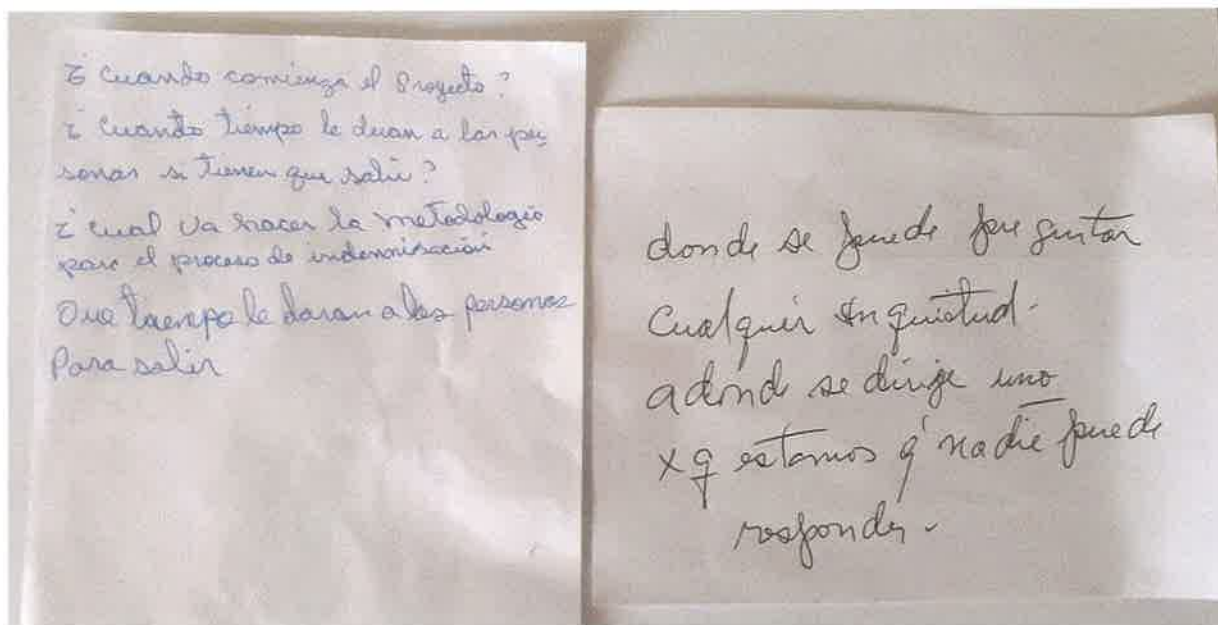 ¿ Cuando comienza el Proyecto?
¿ Cuanto tiempo le duan a las per
sonas si tienen que salir?
¿ cual va hacer la metodologia
para el proceso de indemnisación
Que taempo le daran a las personas
Para salir
donde se puede preguntar
Cualquir inquietud.
adond se dirige uno
x q estamos q' nadie puede
responder.